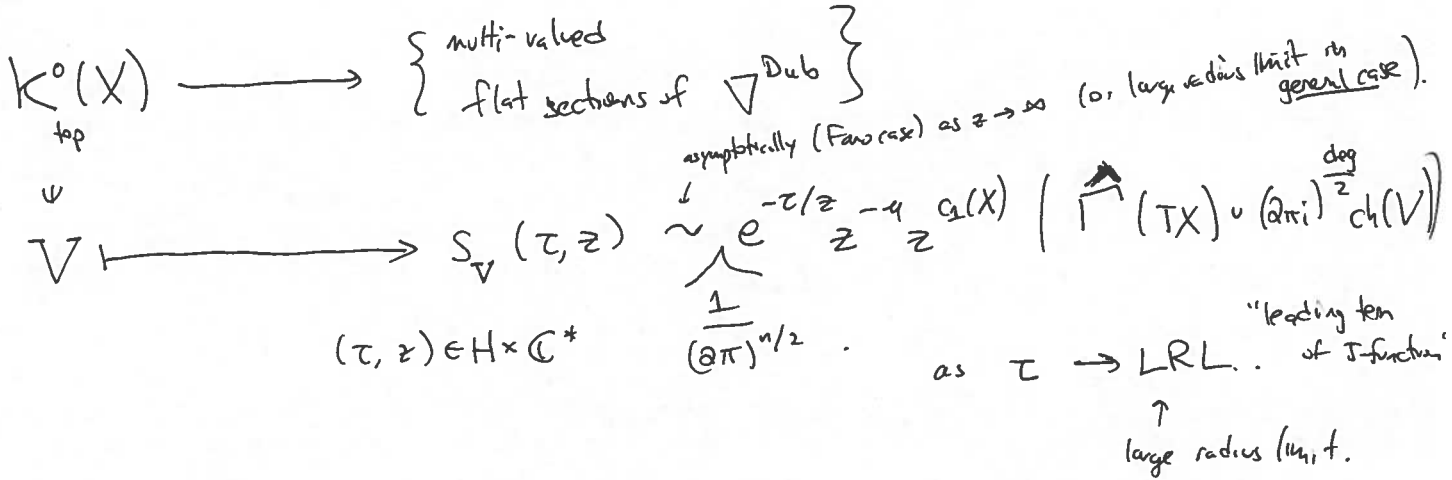 K⁰_top(X) ⟶ { multi-valued flat sections of ∇^Dub }
asymptotically (Fano case) as z → ∞ (or large radius limit in general case).
V ⟼ S_V (τ, z) ~ e^{-τ/z} z^{-μ} z^{c_1(X)} ( Γ̂ (TX) ∪ (2πi)^{deg/2} ch(V) )
(τ, z) ∈ H × ℂ* 1/(2π)^{n/2} .
as τ → LRL.. "leading term of J-function"
↑
large radius limit.